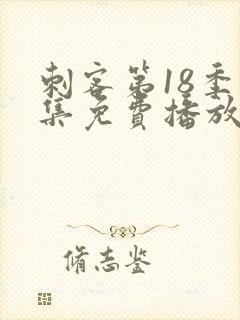 刺客第18季
集免費播放
脩志鉴